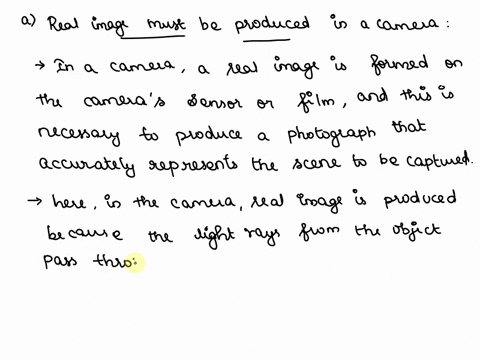 a) Real image must be produced in a camera :
→ In a camera, a real image is formed on
the camera's sensor or film, and this is
necessary to produce a photograph that
accurately represents the scene to be captured.
→ here, in the camera, real image is produced
because the light rays from the object
pass thro